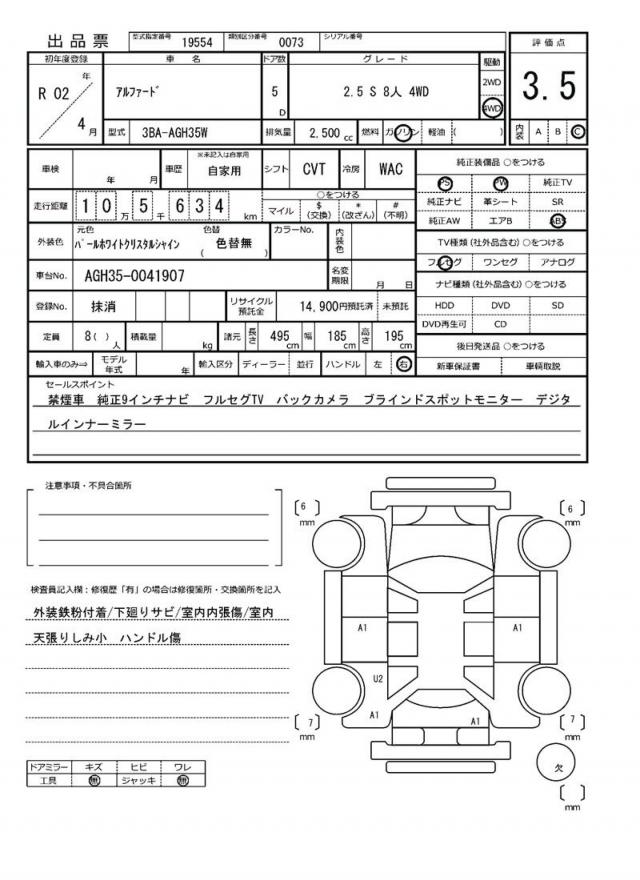 出品票 型式指定番号 19554 類別区分番号 0073 シリアル番号
初年度登録 車名 ドア数 グレード 駆動 評価点
R 02 年 4 月 アルファード 5 D 2.5 S 8人 4WD 2WD 4WD 3.5
型式 3BA-AGH35W 排気量 2,500 cc 燃料 ガソリン 軽油 ( ) 内装 A B C
車検 年 月 車歴 ※未記入は自家用 自家用 シフト CVT 冷房 WAC 純正装備品 ○をつける
PS PW 純正TV
走行距離 10万5千634 km ○をつける
マイル $(交換) *(改ざん) #(不明)
純正ナビ 革シート SR
純正AW エアB ABS
外装色 元色 パールホワイトクリスタルシャイン 色替 ( 色替無 ) カラーNo. 内装色
TV種類(社外品含む) ○をつける
フルセグ ワンセグ アナログ
車台No. AGH35-0041907 名変期限 月 日
ナビ種類(社外品含む) ○をつける
登録No. 抹消 リサイクル預託金 14,900円預託済 未預託
HDD DVD SD
DVD再生可 CD
定員 8( ) 人 積載量 kg 諸元 長さ 495 cm 幅 185 cm 高さ 195 cm
後日発送品 ○をつける
輸入車のみ⇒ モデル年式 年 輸入区分 ディーラー 並行 ハンドル 左 右
新車保証書 車輌取説
セールスポイント
禁煙車 純正9インチナビ フルセグTV バックカメラ ブラインドスポットモニター デジタ
ルインナーミラー
注意事項・不具合箇所
検査員記入欄：修復歴「有」の場合は修復箇所・交換箇所を記入
外装鉄粉付着/下廻りサビ/室内内張傷/室内
天張りしみ小 ハンドル傷
ドアミラー キズ ヒビ ワレ
工具 無 ジャッキ 無
[6] mm
[6] mm
A1
A1
U2
A1
A1
[7] mm
[7] mm
欠
[ ] mm